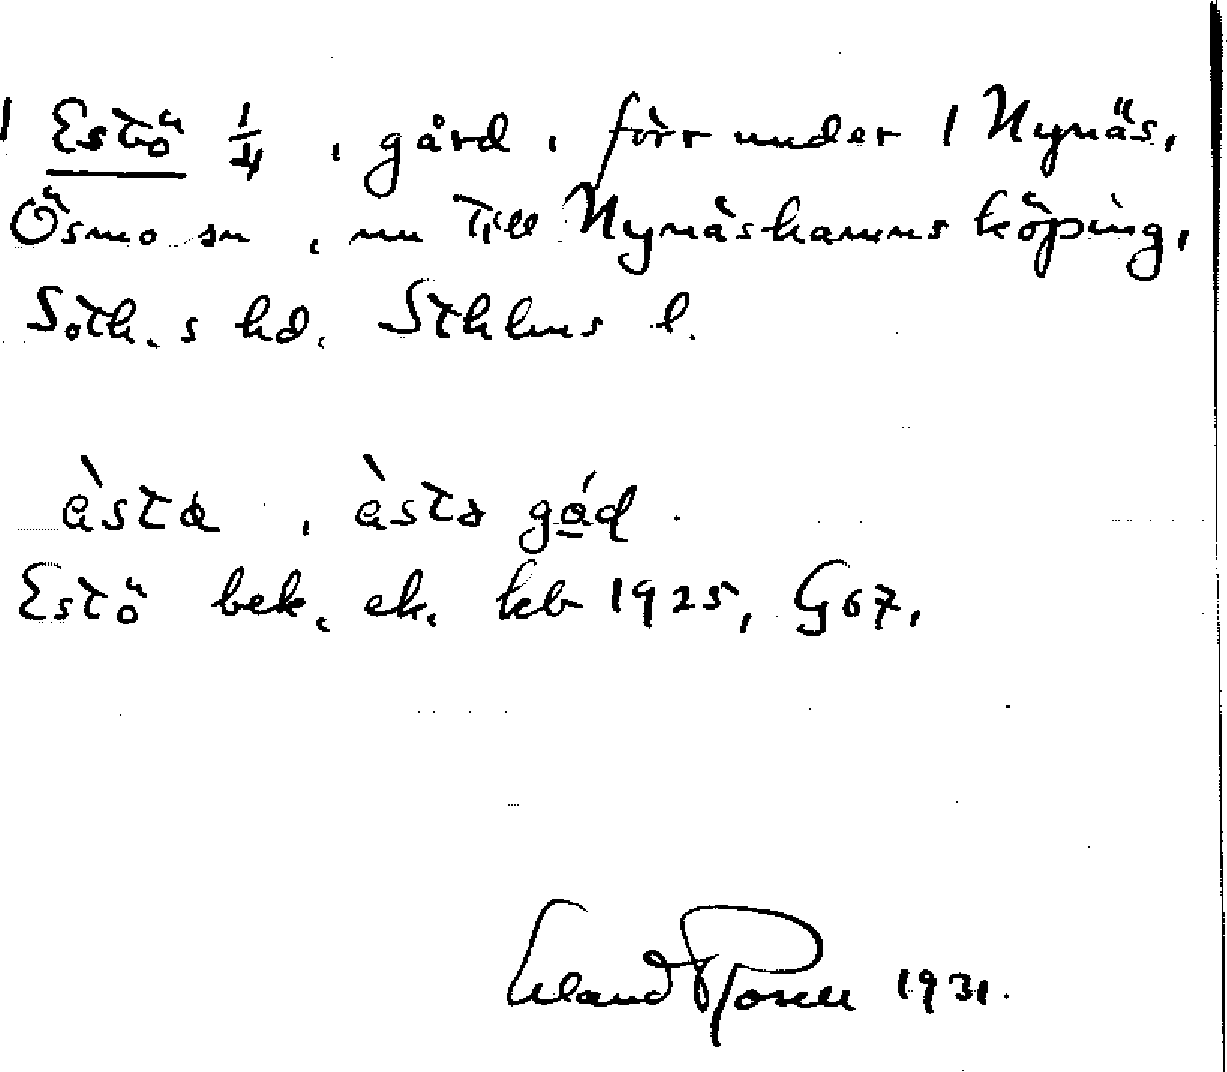 1 Estö 1/4, gård, förr under 1 Nynäs,
Ösmo sn, nu till Nynäshamns köping,
Soth.s hd. Sthlms l.
èsta, èstə gá̱d.
Estö bek. ek. kb 1925, G67,
Erland Rosell 1931.